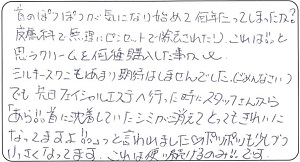 首のぽつぽつが気になり始めて何年たってしまったか?
皮膚科で無理にピンセットで除去されたり、これは!!っと
思うクリームを何種購入した事か…
ミルキースワンもあまり期待はしませんでした。(ごめんなさい)
でも先日フェイシャルエステへ行った時にスタッフさんから
「あら!!首に沈着していたシミが消えてとってもきれいに
なってますよ!!」っと言われました♡ポツポツも少しづつ
小さくなってます。これは使い続けるのみ!!です